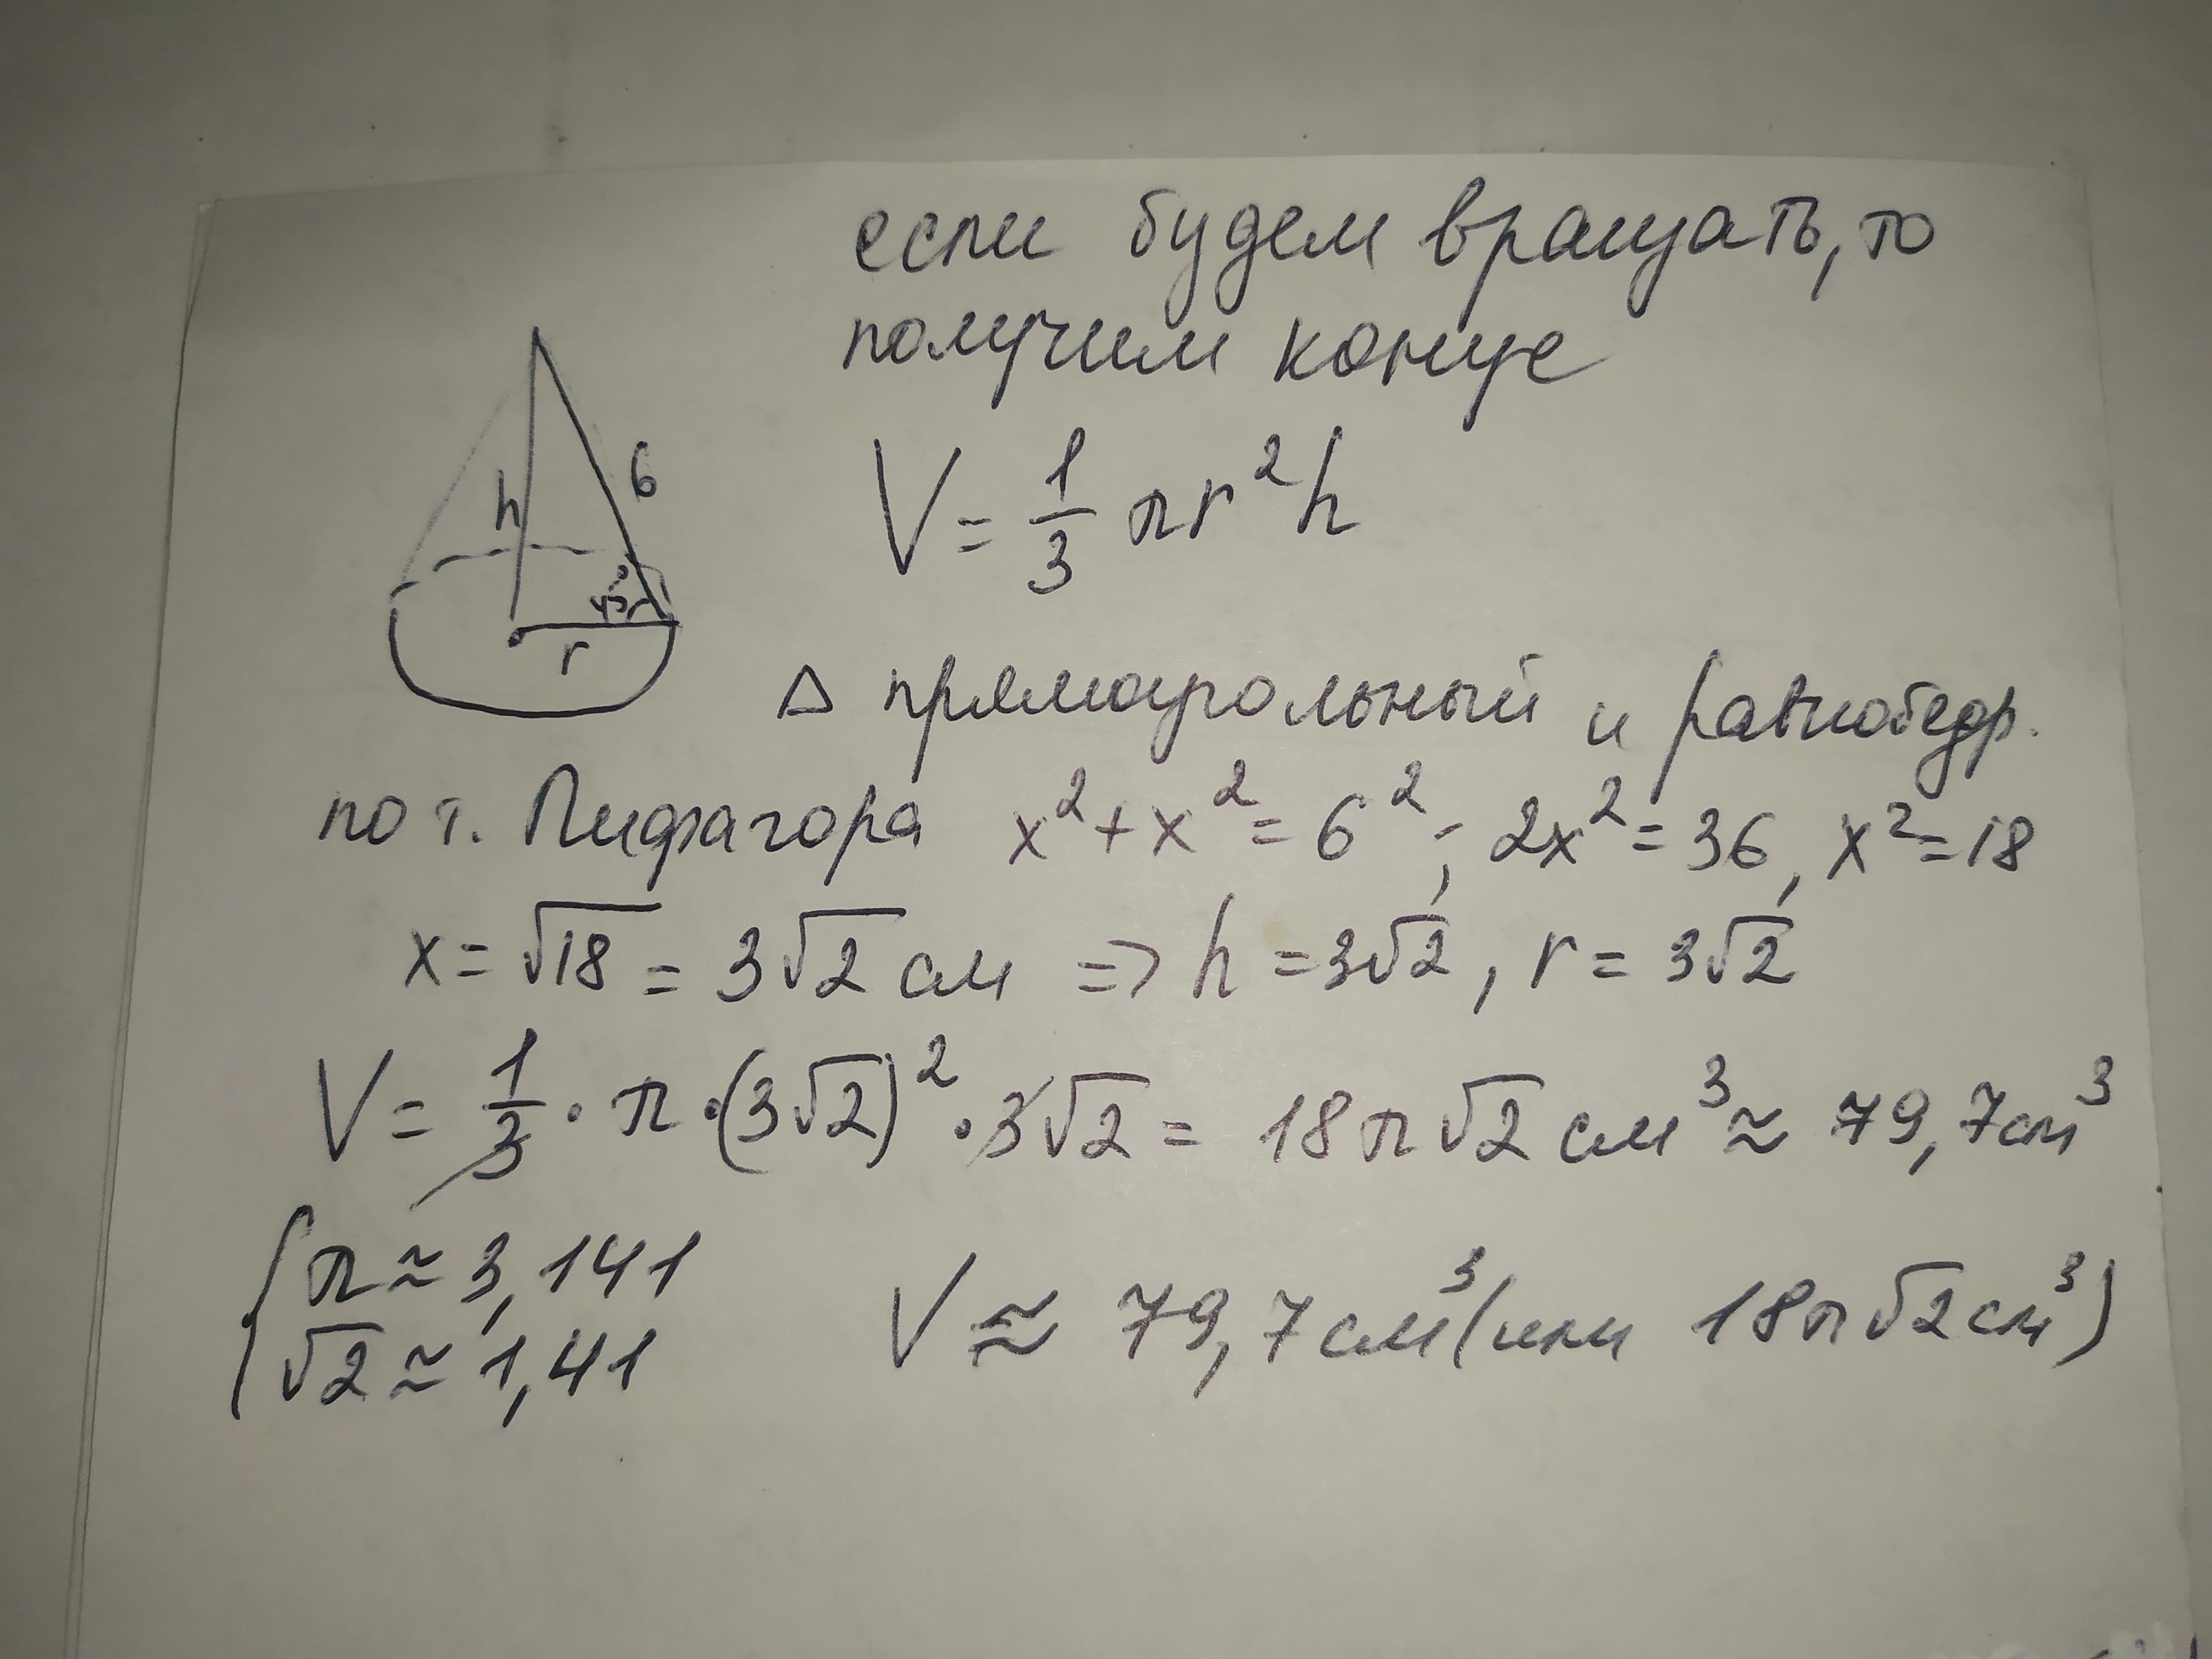 если будем вращать, то
получим конус
h
6
45°
r
V = 1/3 πr²h
Δ прямоугольный и равнобедр.
по т. Пифагора x² + x² = 6²; 2x² = 36, x² = 18
x = √18 = 3√2 см => h = 3√2, r = 3√2
V = 1/3 · π · (3√2)² · 3√2 = 18π√2 см³ ≈ 79,7 см³
π ≈ 3,141
√2 ≈ 1,41
V ≈ 79,7 см³ (или 18π√2 см³)